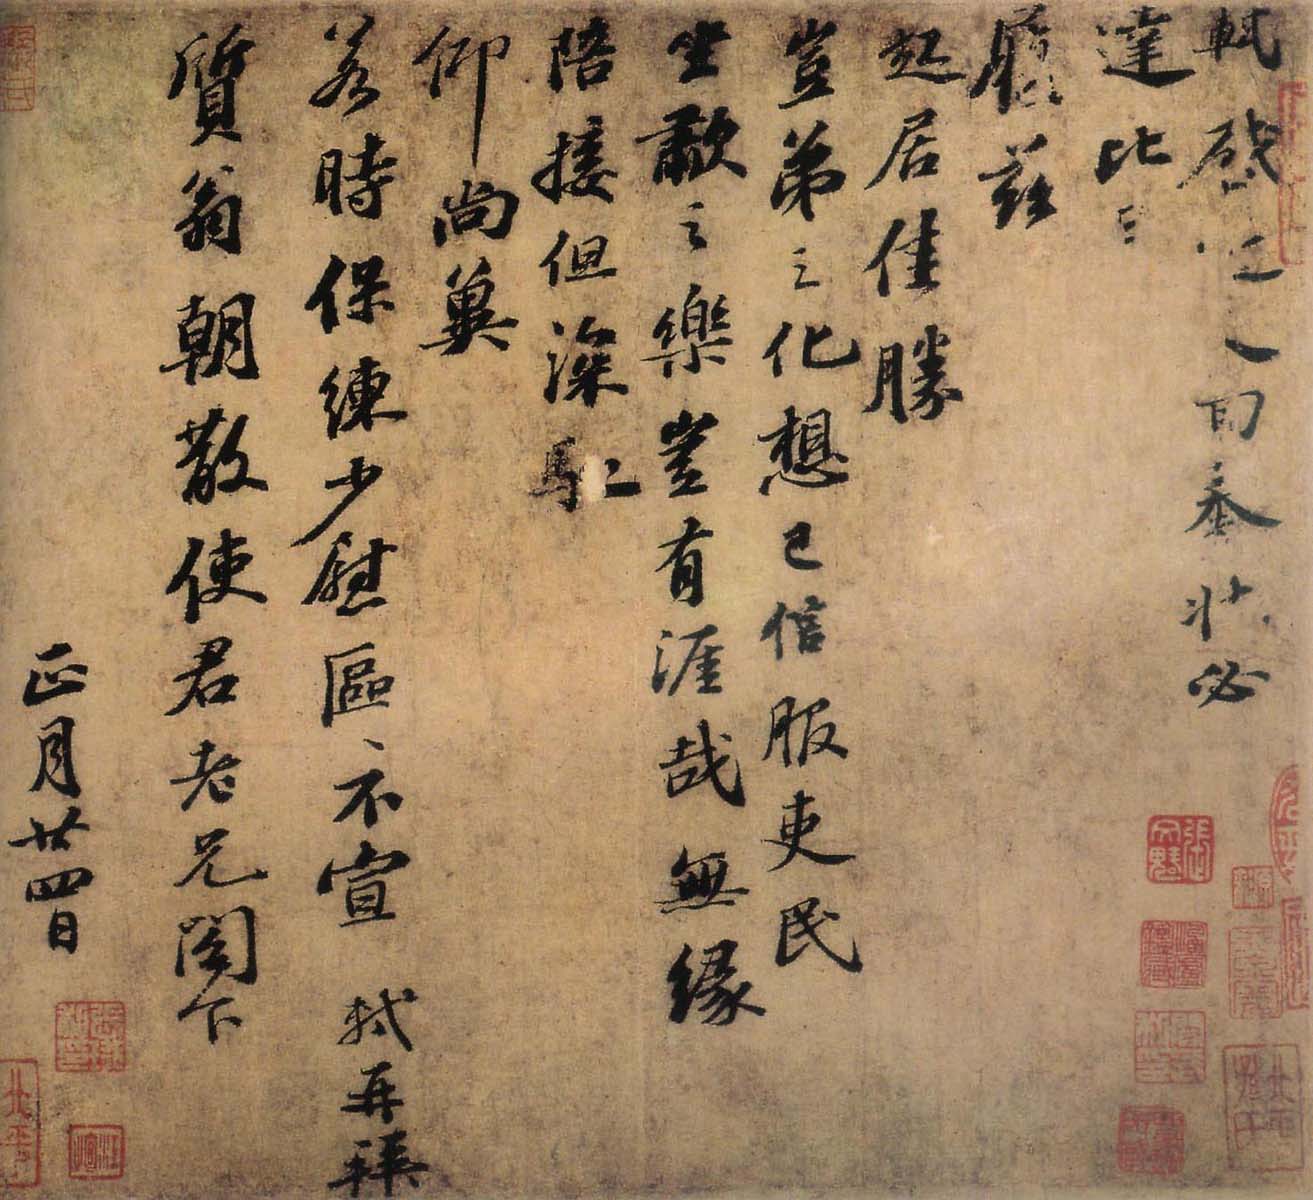 軾啟近人回奉狀必
達比
履茲
起居佳勝
豈弟之化想已信服吏民
坐歗之樂豈有涯哉無緣
陪接但深馳
仰尚冀
若時保練少慰區〻不宣 軾再拜
質翁朝散使君老兄閣下
正月廿四日
張文魁